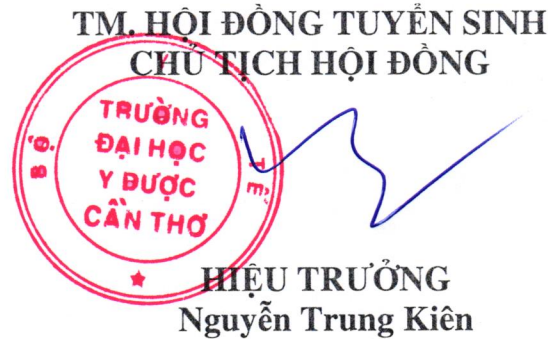 TM. HỘI ĐỒNG TUYỂN SINH
CHỦ TỊCH HỘI ĐỒNG
BỘ Y TẾ
TRƯỜNG
ĐẠI HỌC
Y DƯỢC
CẦN THƠ
HIỆU TRƯỞNG
Nguyễn Trung Kiên